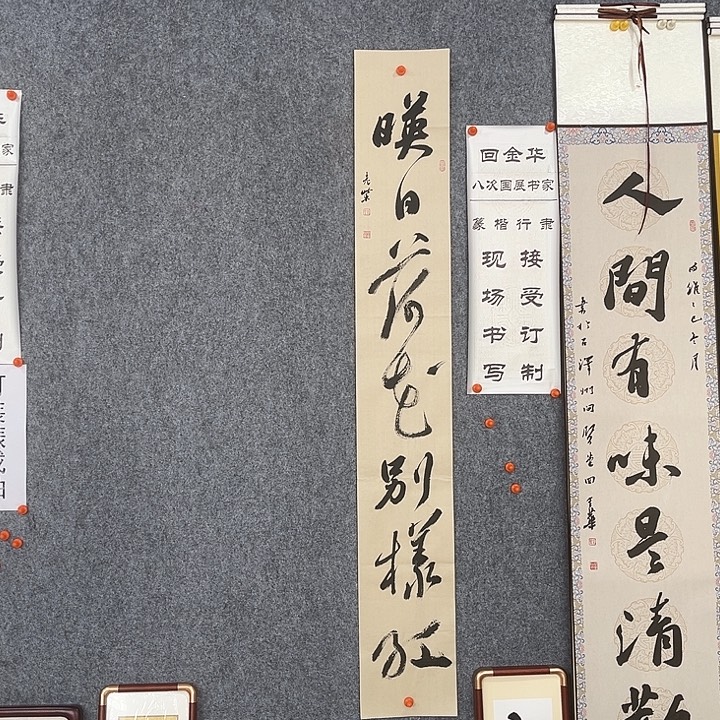 暎日荷花別樣紅
回金华
八次国展书家
篆楷行隶
接受订制
现场书写
人間有味是清歡
家
隶